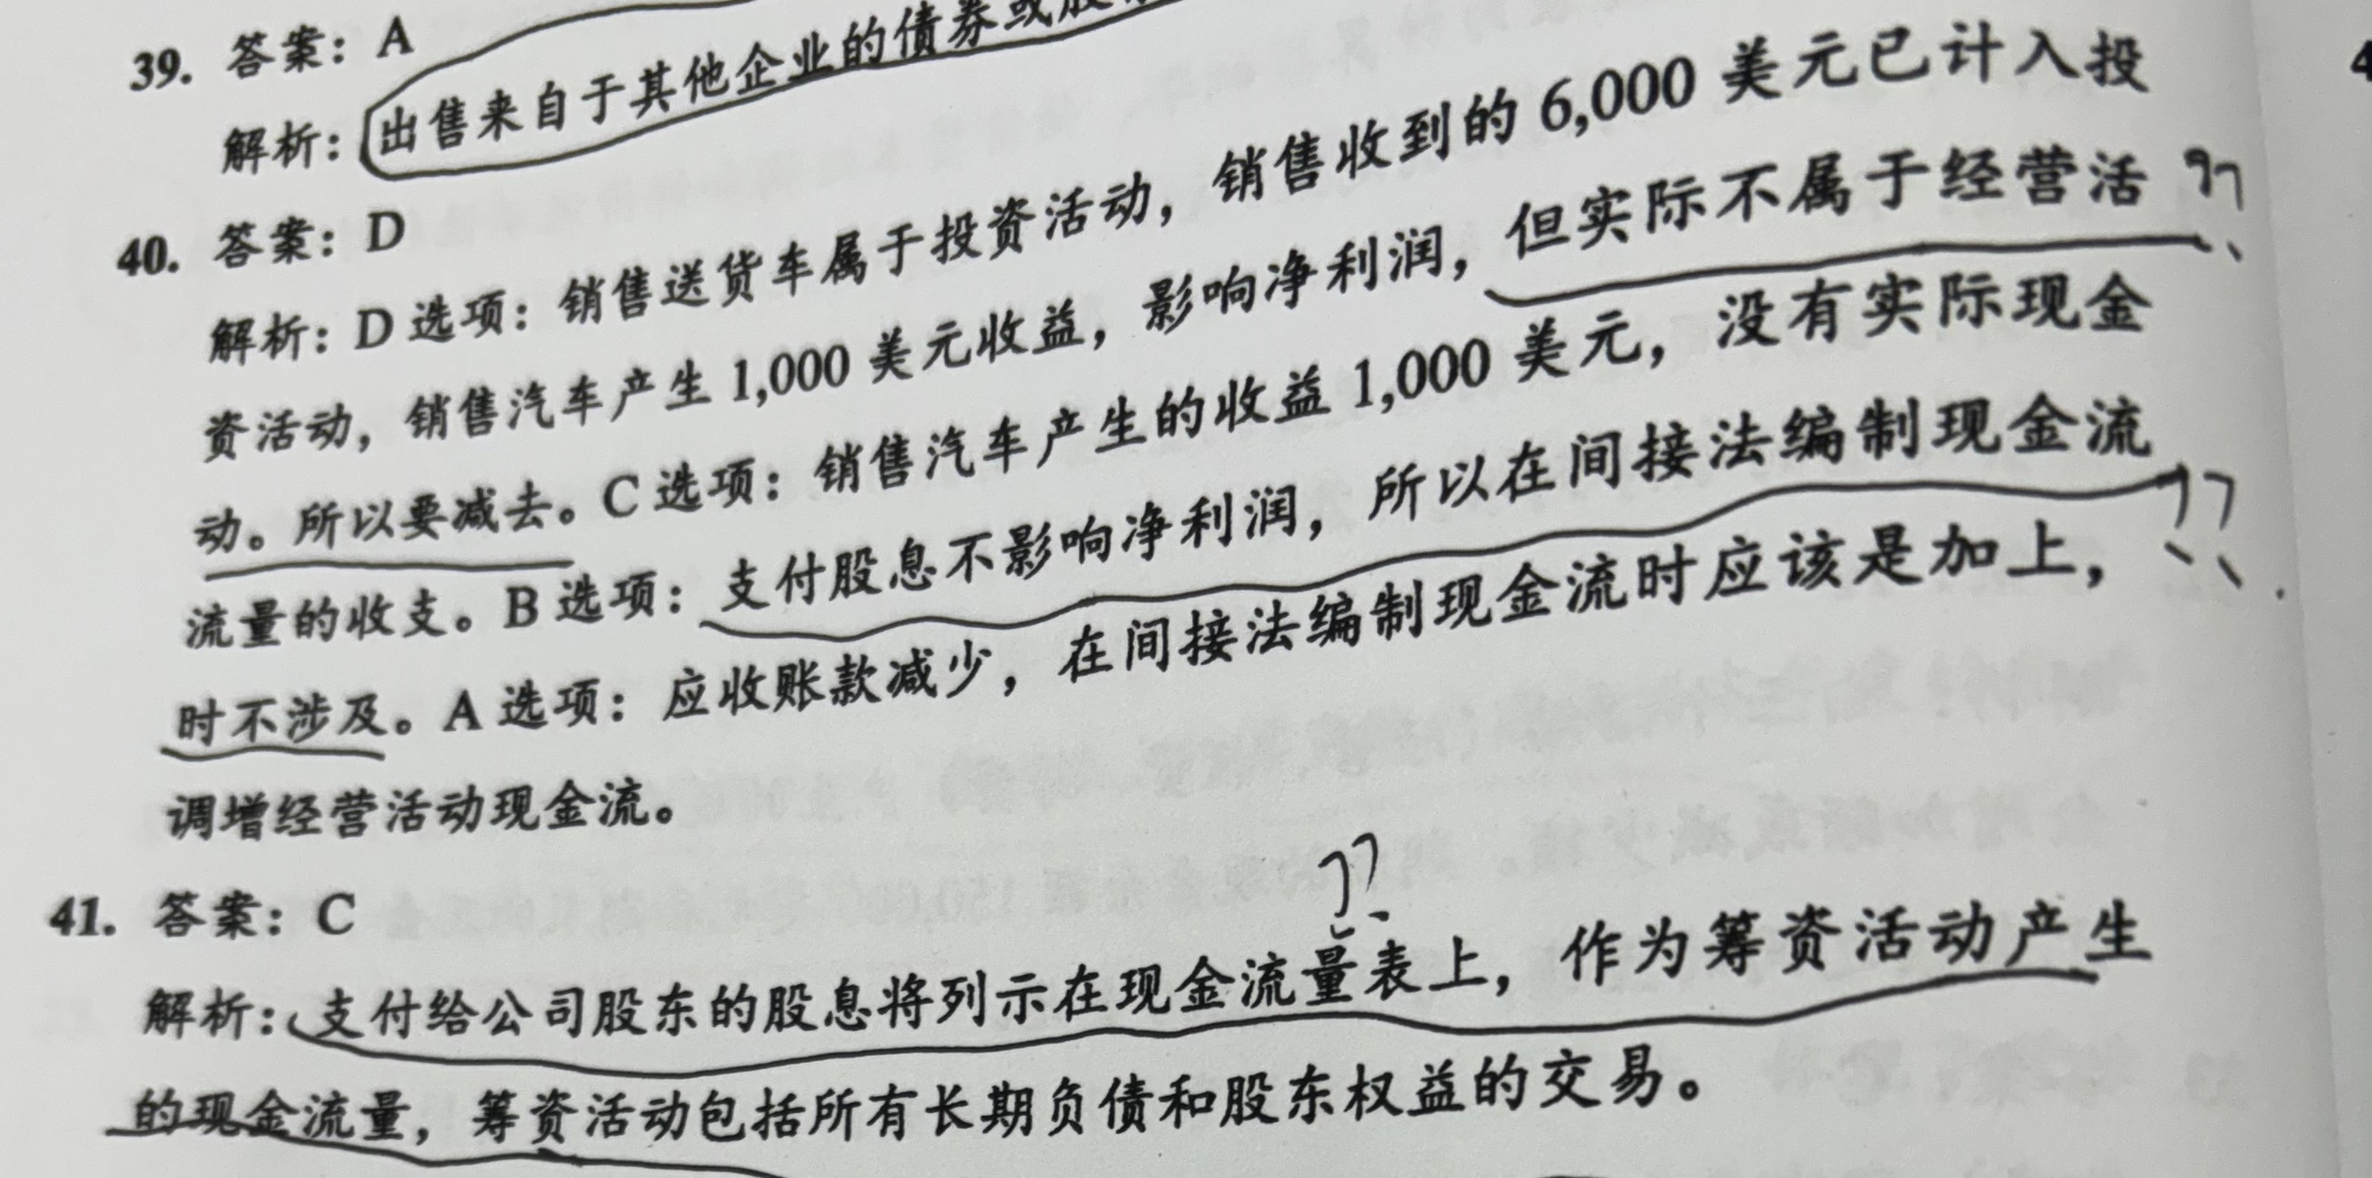 39. 答案：A
解析：出售来自于其他企业的债券或股
40. 答案：D
解析：D 选项：销售送货车属于投资活动，销售收到的 6,000 美元已计入投
资活动，销售汽车产生 1,000 美元收益，影响净利润，但实际不属于经营活 ??
动。所以要减去。C 选项：销售汽车产生的收益 1,000 美元，没有实际现金
流量的收支。B 选项：支付股息不影响净利润，所以在间接法编制现金流 ??
时不涉及。A 选项：应收账款减少，在间接法编制现金流时应该是加上，
调增经营活动现金流。
41. 答案：C
??
解析：支付给公司股东的股息将列示在现金流量表上，作为筹资活动产生
的现金流量，筹资活动包括所有长期负债和股东权益的交易。